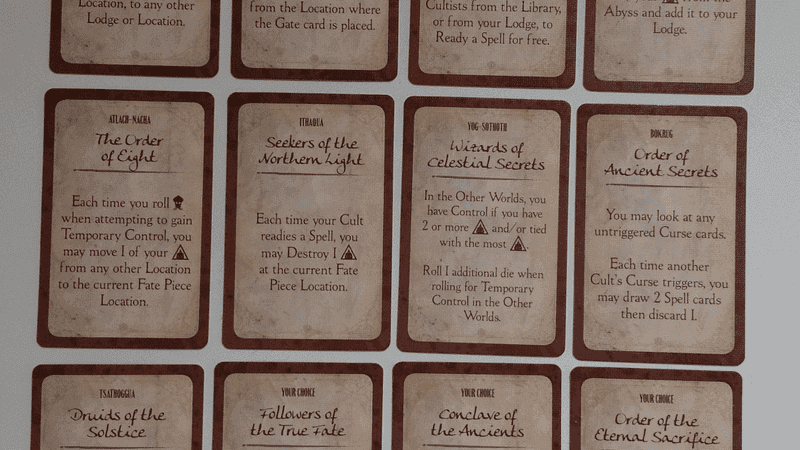 Location, to any other
Lodge or Location.
from the Location where
the Gate card is placed.
Cultists from the Library,
or from your Lodge, to
Ready a Spell for free.
Abyss and add it to your
Lodge.
ATLACH-NACHA
The Order
of Eight
Each time you roll
when attempting to gain
Temporary Control, you
may move 1 of your
from any other Location
to the current Fate Piece
Location.
ITHAQUA
Seekers of the
Northern Light
Each time your Cult
readies a Spell, you
may Destroy 1
at the current Fate
Piece Location.
YOG-SOTHOTH
Wizards of
Celestial Secrets
In the Other Worlds, you
have Control if you have
2 or more and/or tied
with the most .
Roll 1 additional die when
rolling for Temporary
Control in the Other
Worlds.
BOKRUG
Order of
Ancient Secrets
You may look at any
untriggered Curse cards.
Each time another
Cult's Curse triggers, you
may draw 2 Spell cards
then discard 1.
TSATHOGGUA
Druids of the
Solstice
YOUR CHOICE
Followers of
the True Fate
YOUR CHOICE
Conclave of
the Ancients
YOUR CHOICE
Order of the
Eternal Sacrifice